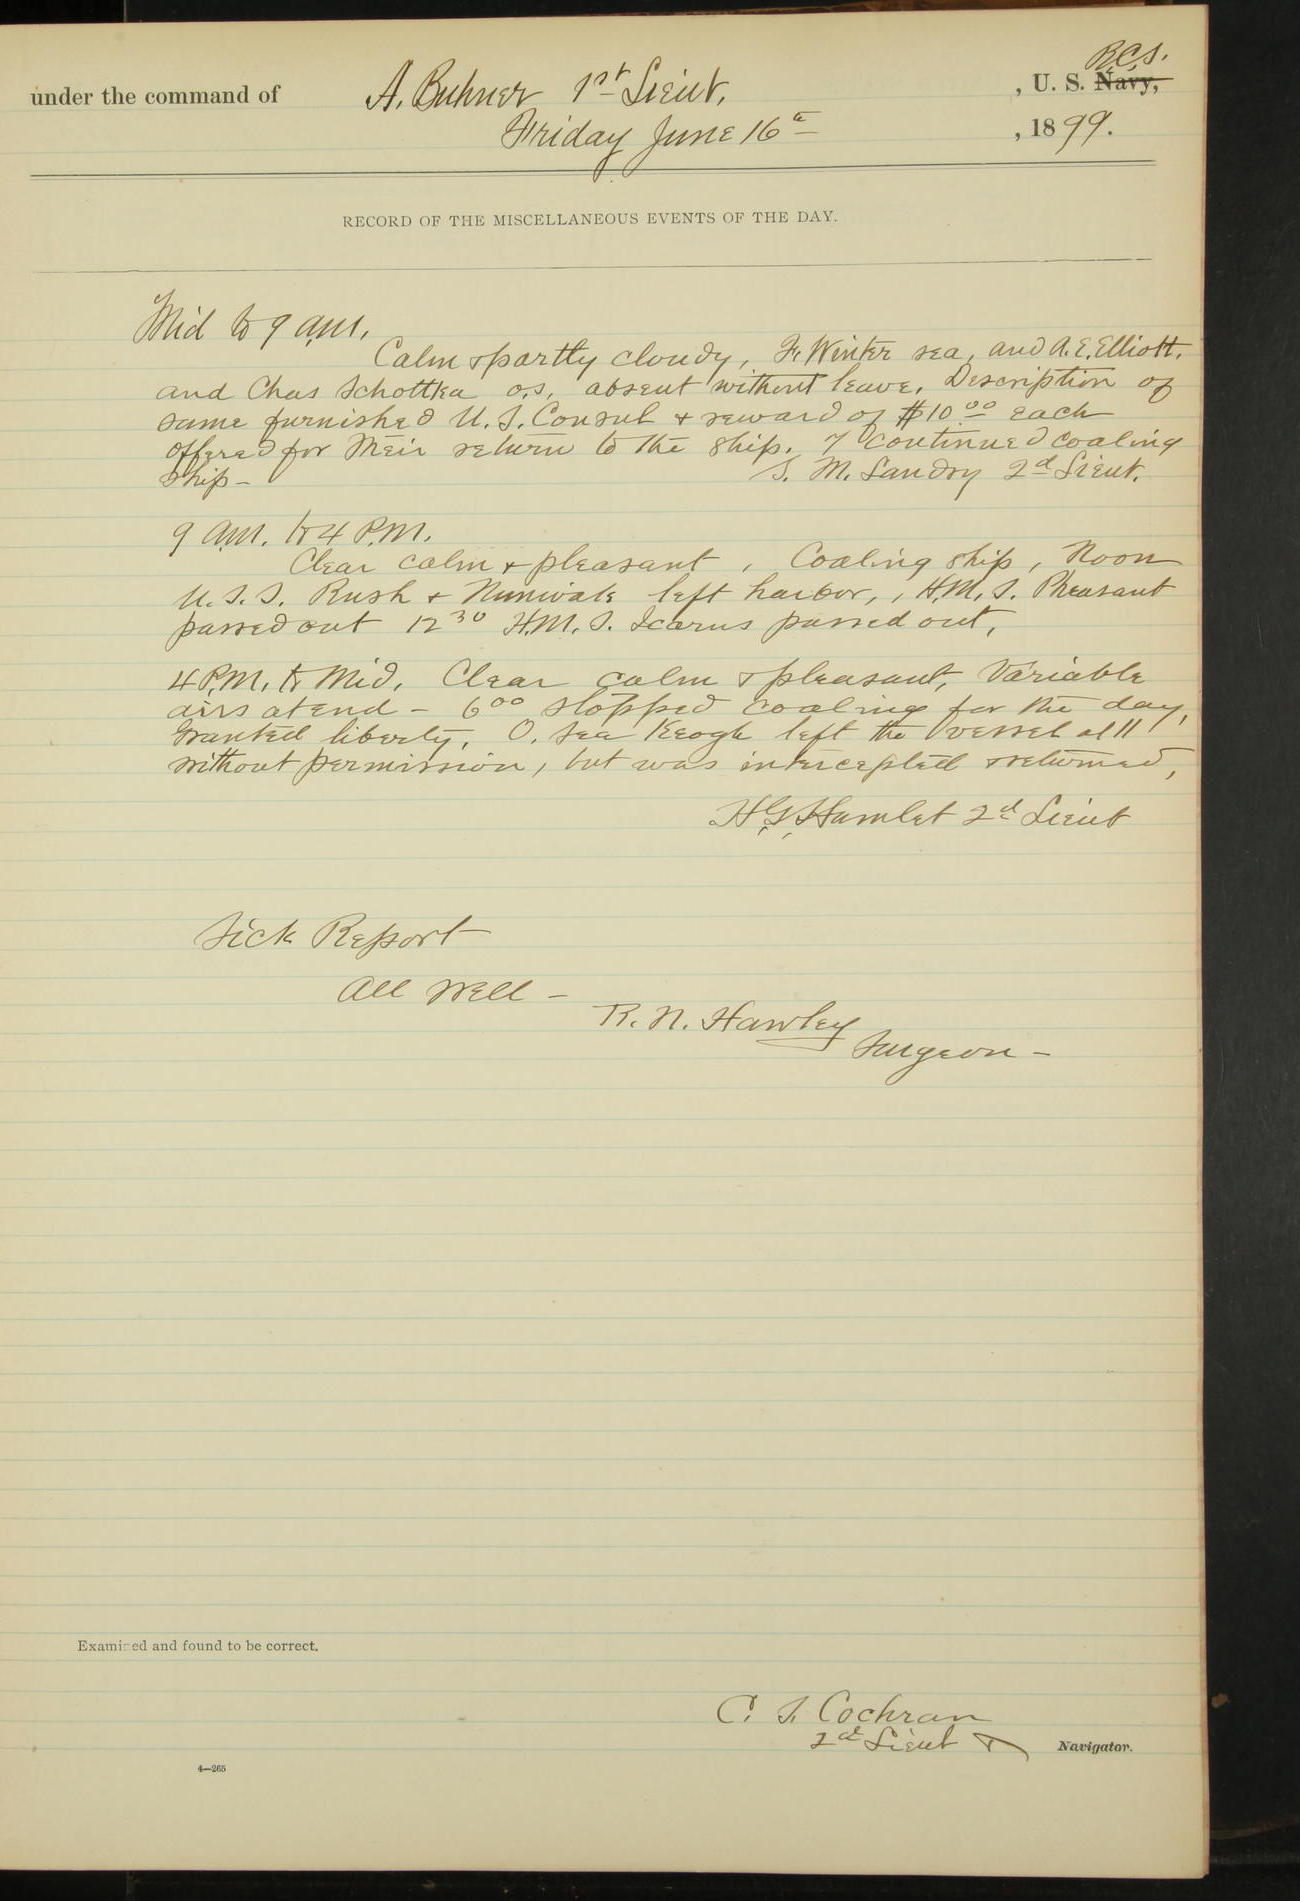 R.C.S.
under the command of A. Buhner 1st Lieut. , U. S. Navy,
Friday June 16th , 1899.
RECORD OF THE MISCELLANEOUS EVENTS OF THE DAY.
Mid to 9 a.m.
Calm & partly cloudy, F. Winter sea, and A. E. Elliott.
and Chas Schottka o.s. absent without leave. Description of
same furnished U. S. Consul & reward of $10 00 each
offered for their return to the ship. 7 Continued coaling
ship - S. M. Landry 2d Lieut.
9 a.m. to 4 P.M.
Clear calm & pleasant, Coaling ship, Noon
U. S. S. Rush & Nunivak left harbor, , H. M. S. Pheasant
passed out 12 30 H.M. S. Icarus passed out,
4 P.M. to Mid. Clear calm & pleasant, Variable
airs at end - 6 00 stopped coaling for the day,
Granted liberty. O. Sea Keogh left the vessel at 11
without permission, but was intercepted & returned,
H. G. Hamlet 2d Lieut
Sick Report
All Well -
R. N. Hawley
Surgeon -
Examined and found to be correct.
C. S. Cochran
2d Lieut & Navigator.
4—265